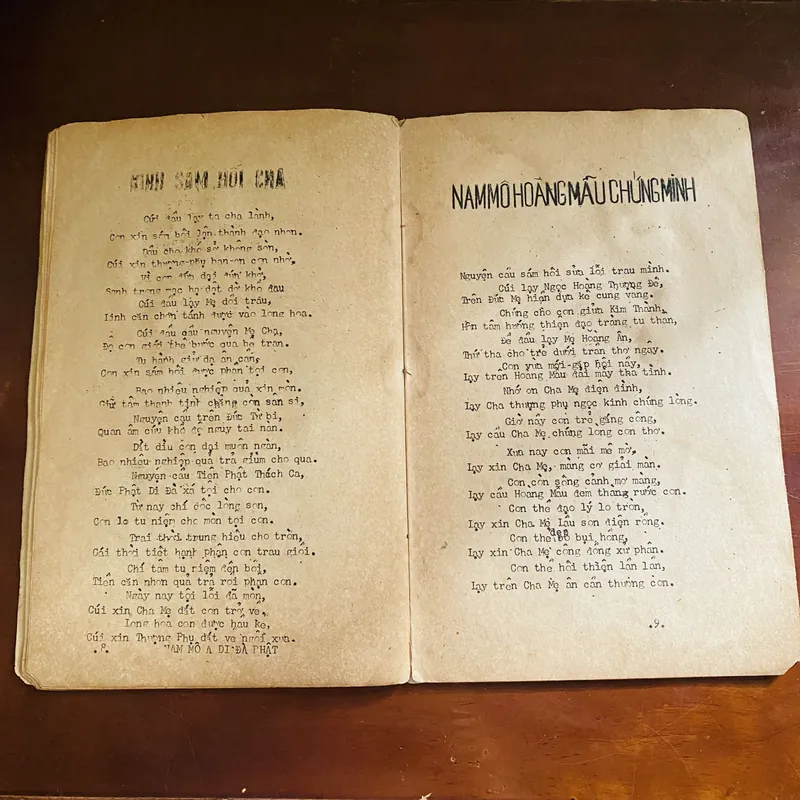 KINH SÁM HỐI CHA
Cúi đầu lạy tạ cha lành,
Con xin sám hối lận thành đạo nhơn.
Dầu cho khổ sở không sờn,
Cúi xin thượng-phụ ban-ơn con nhờ,
Vì con dại
Sanh trong mạc hạ dạt dờ khổ đau
Cúi đầu lạy Mẹ dồi trau,
Linh căn chơn tánh được vào long hoa.
Cúi đầu cầu nguyện Mẹ Cha,
Độ con giới thể bước qua bể trần.
Tu hành giữ dạ ân cần,
Con xin sám hối được phần tội con,
Bao nhiêu nghiệp quả xin mòn.
Giữ tâm thanh tịnh chẳng còn sân si,
Nguyện cầu trên Đức Từ bi,
Quan âm cứu khổ độ nguy tai nàn.
Dắt dìu con dại muôn ngàn,
Bao nhiêu nghiệp quả trả giùm cho qua.
Nguyện cầu Tiên Phật Thích Ca,
Đức Phật Di Đà xá tội cho con.
Từ nay chí dốc lòng son,
Con lo tu niệm cho mòn tội con.
Trai thời trung hiếu cho tròn,
Gái thời tiết hạnh phận con trau giồi.
Chí tâm tu niệm đền bồi,
Tiền căn nhơn quả trả rồi phận con.
Ngày nay tội lỗi đã mòn,
Cúi xin Cha Mẹ dắt con trở về.
Long hoa con được hầu kề,
Cúi xin Thượng Phụ dắt về ngôi xưa.
.8. NAM MÔ A DI ĐÀ PHẬT
NAM MÔ HOÀNG MẪU CHỨNG MINH
Nguyện cầu sám hối sửa lỗi trau mình.
Cúi lạy Ngọc Hoàng Thượng Đế,
Trên Đức Mẹ hiện dựa kề cung vàng.
Chứng cho con giữa Kim Thành,
Hồn tâm hướng thiện đạo tràng tu thân,
Để đầu lạy Mẹ Hoàng Ân,
Thứ tha cho trẻ dưới trần thơ ngây.
Con vừa mới-gặp hội này,
Lạy trên Hoàng Mẫu đài mây tha tình.
Nhớ ơn Cha Mẹ điện đình,
Lạy Cha thượng phụ ngọc kinh chứng lòng.
Giờ nầy con trẻ gắng công,
Lạy cầu Cha Mẹ chứng lòng con thơ.
Xưa nay con mãi mê mờ,
Lạy xin Cha Mẹ, màng cơ giải màn.
Con còn sống cảnh mơ màng,
Lạy cầu Hoàng Mẫu đem thang rước con.
Con thề đạo lý lo tròn,
Lạy xin Cha Mẹ Lầu son điện rồng.
Con thề bụi hồng,
Lạy xin Cha Mẹ công đồng xử phân.
Con thề hồi thiện lần lần,
Lạy trên Cha Mẹ ân cần thương con.
.9.